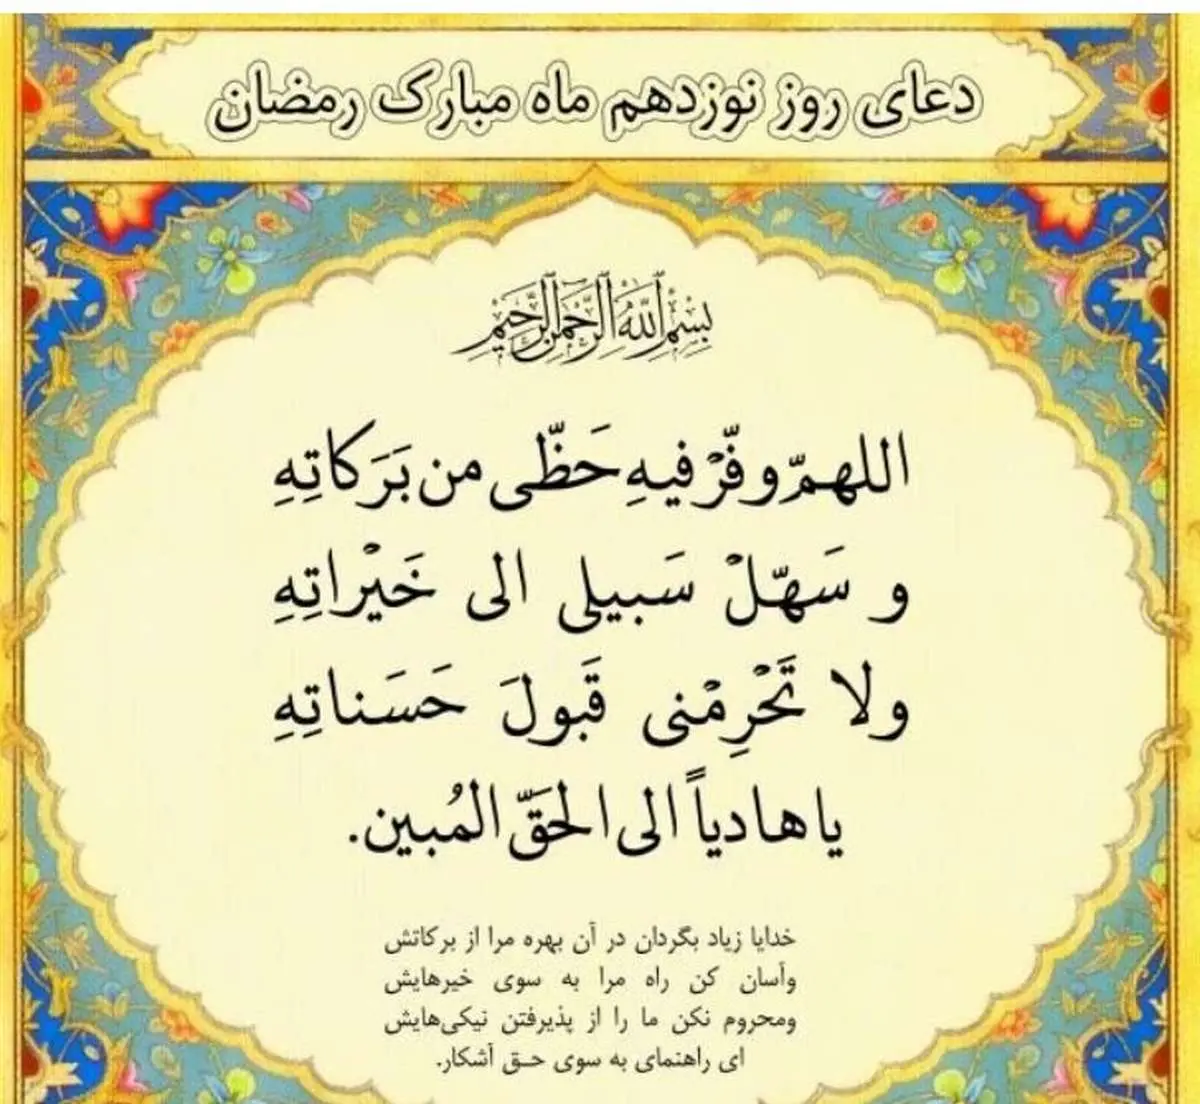 دعای روز نوزدهم ماه مبارک رمضان
بِسْمِ اللَّهِ الرَّحْمنِ الرَّحِيمِ
اللهمّ وفّرْ فيهِ حَظّی من بَرَكاتِهِ
و سَهّلْ سَبيلی الی خَيْراتِهِ
ولا تَحْرِمْنی قَبولَ حَسَناتِهِ
يا هادياً الی الحَقّ المُبين.
خدایا زیاد بگردان در آن بهره مرا از برکاتش
وآسان کن راه مرا به سوی خیرهایش
ومحروم نکن ما را از پذیرفتن نیکی‌هایش
ای راهنمای به سوی حـق آشکار.